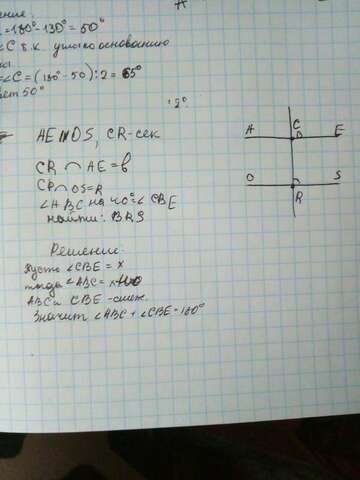 ение:
=180°-130°=50°
<C т.к. углы основанию
<C=(180°-50):2=65°
вет 50°
2°.
AE||OS, CR-сек
CR ∩ AE=B
CR∩OS=R
<ABC на 40°< CBE
найти: BRS
Решение:
пусть <CBE = x
тогда <ABC = x
ABC и CBE-смеж.
Значит <ABC+<CBE=180°
A C E
B
O S
R